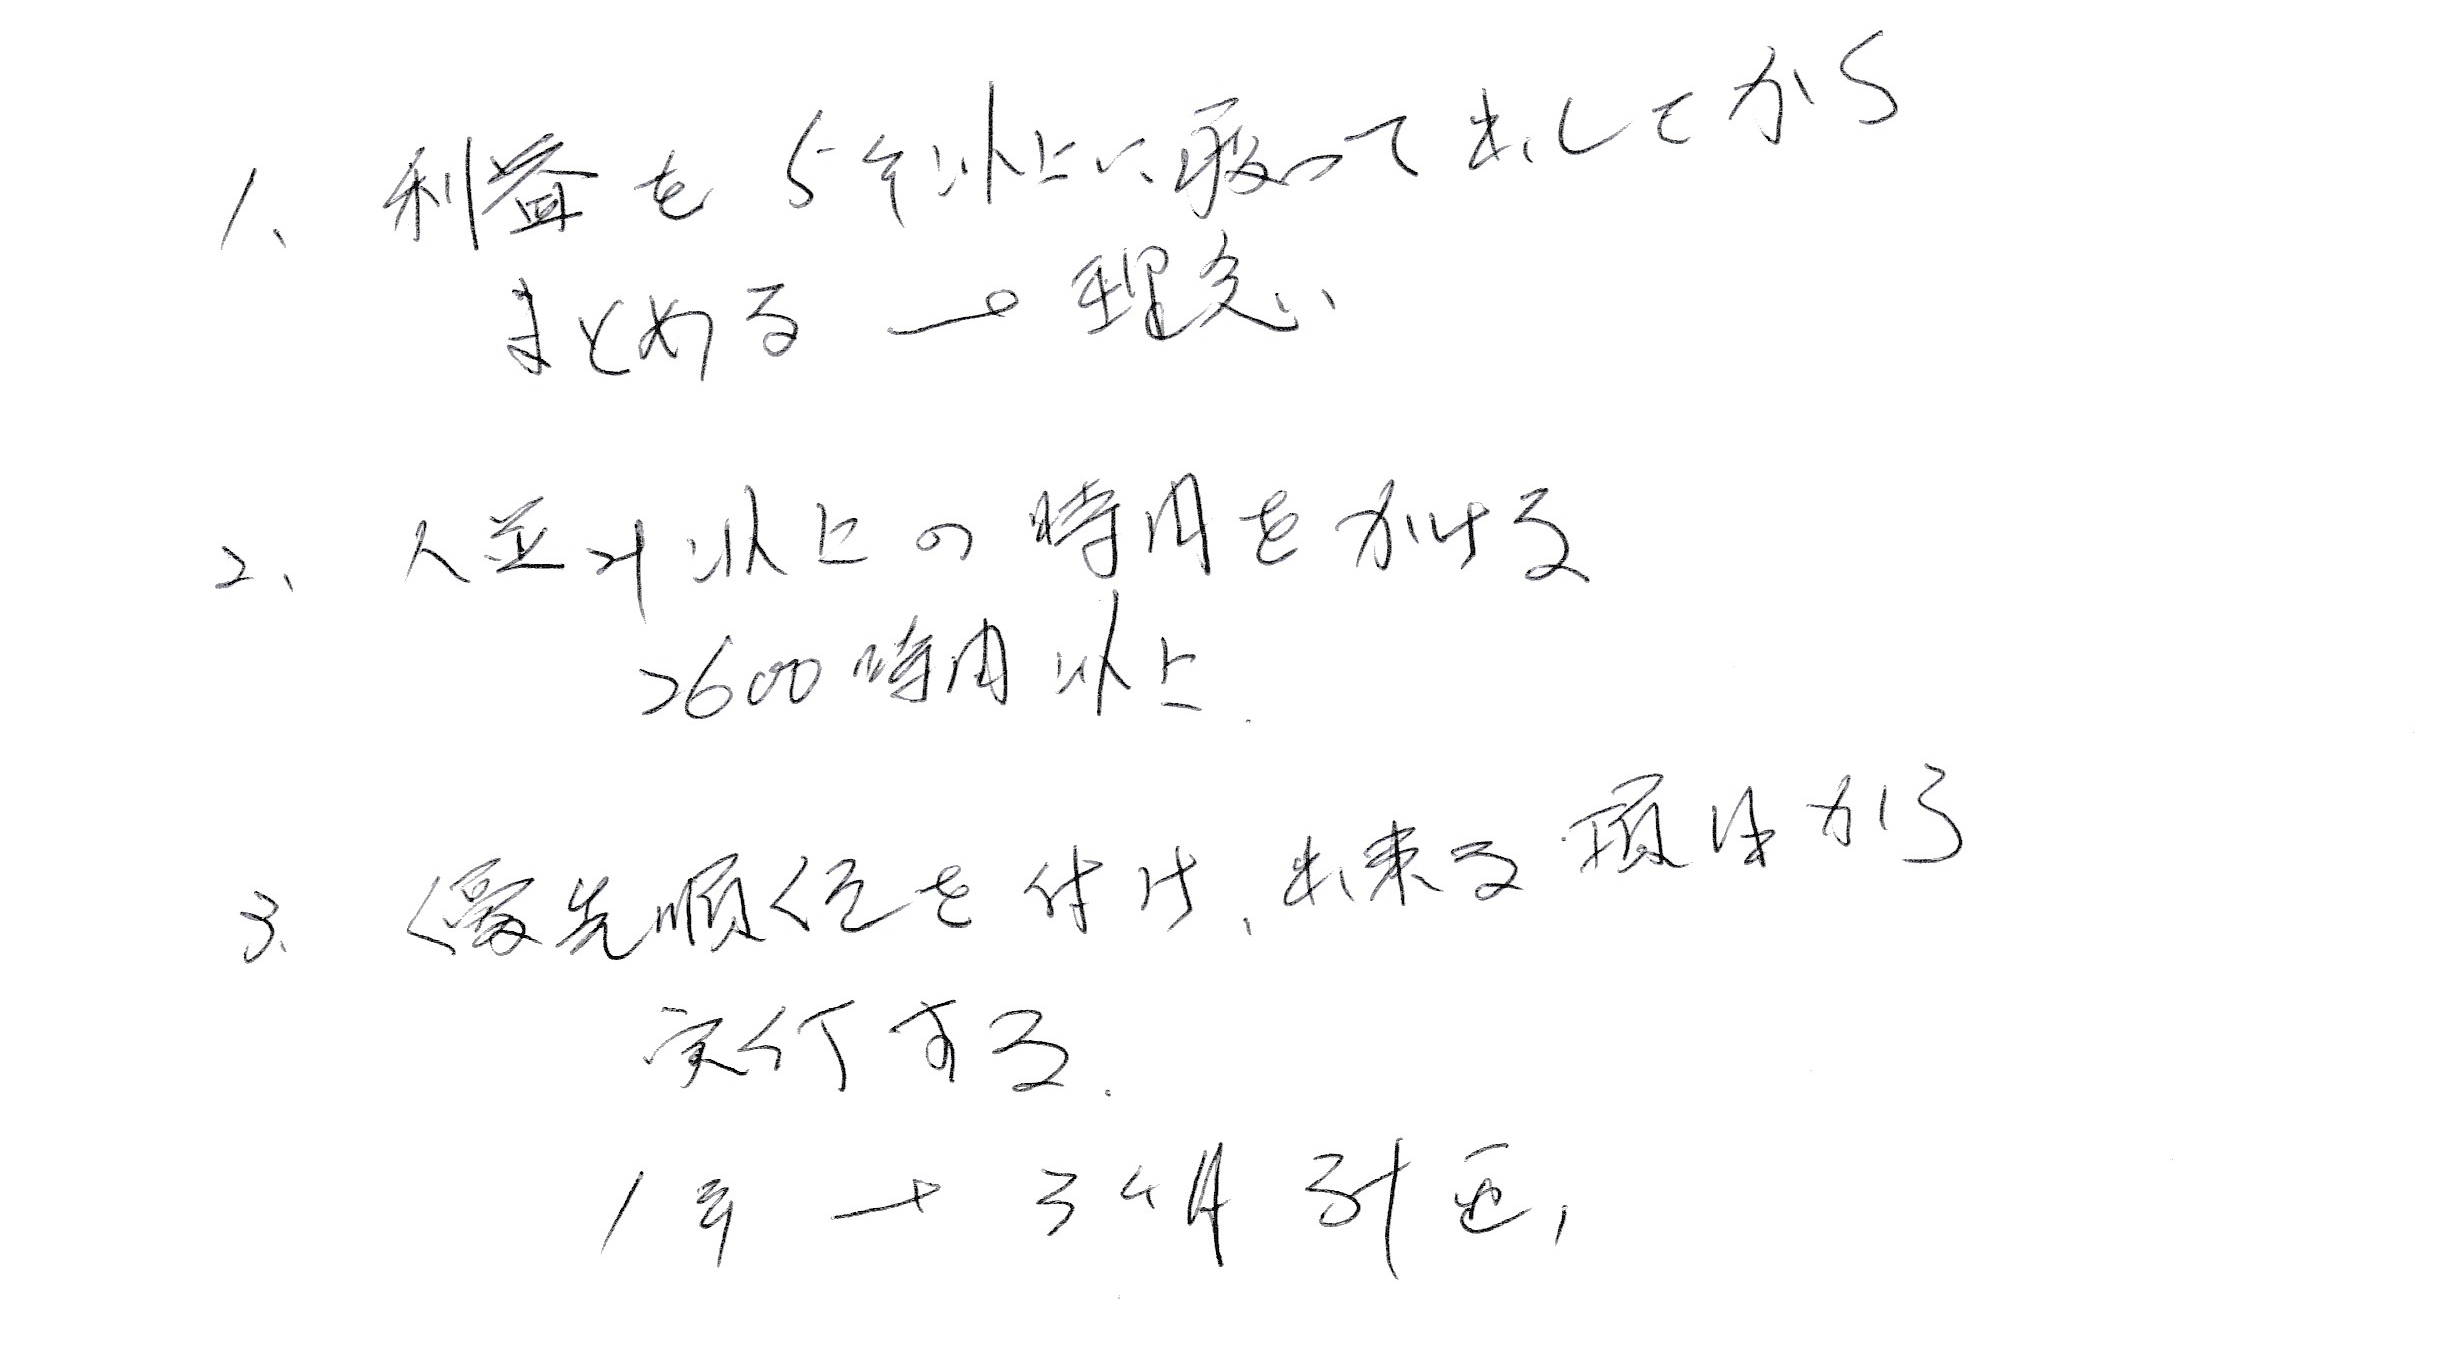 1、利益を5年以上に亘って出してから
まとめる → 理念、
2、人並み以上の時間をかける
2600時間以上.
3、優先順位を付け、出来る項目から
実行する.
1年 → 3ヶ月計画,